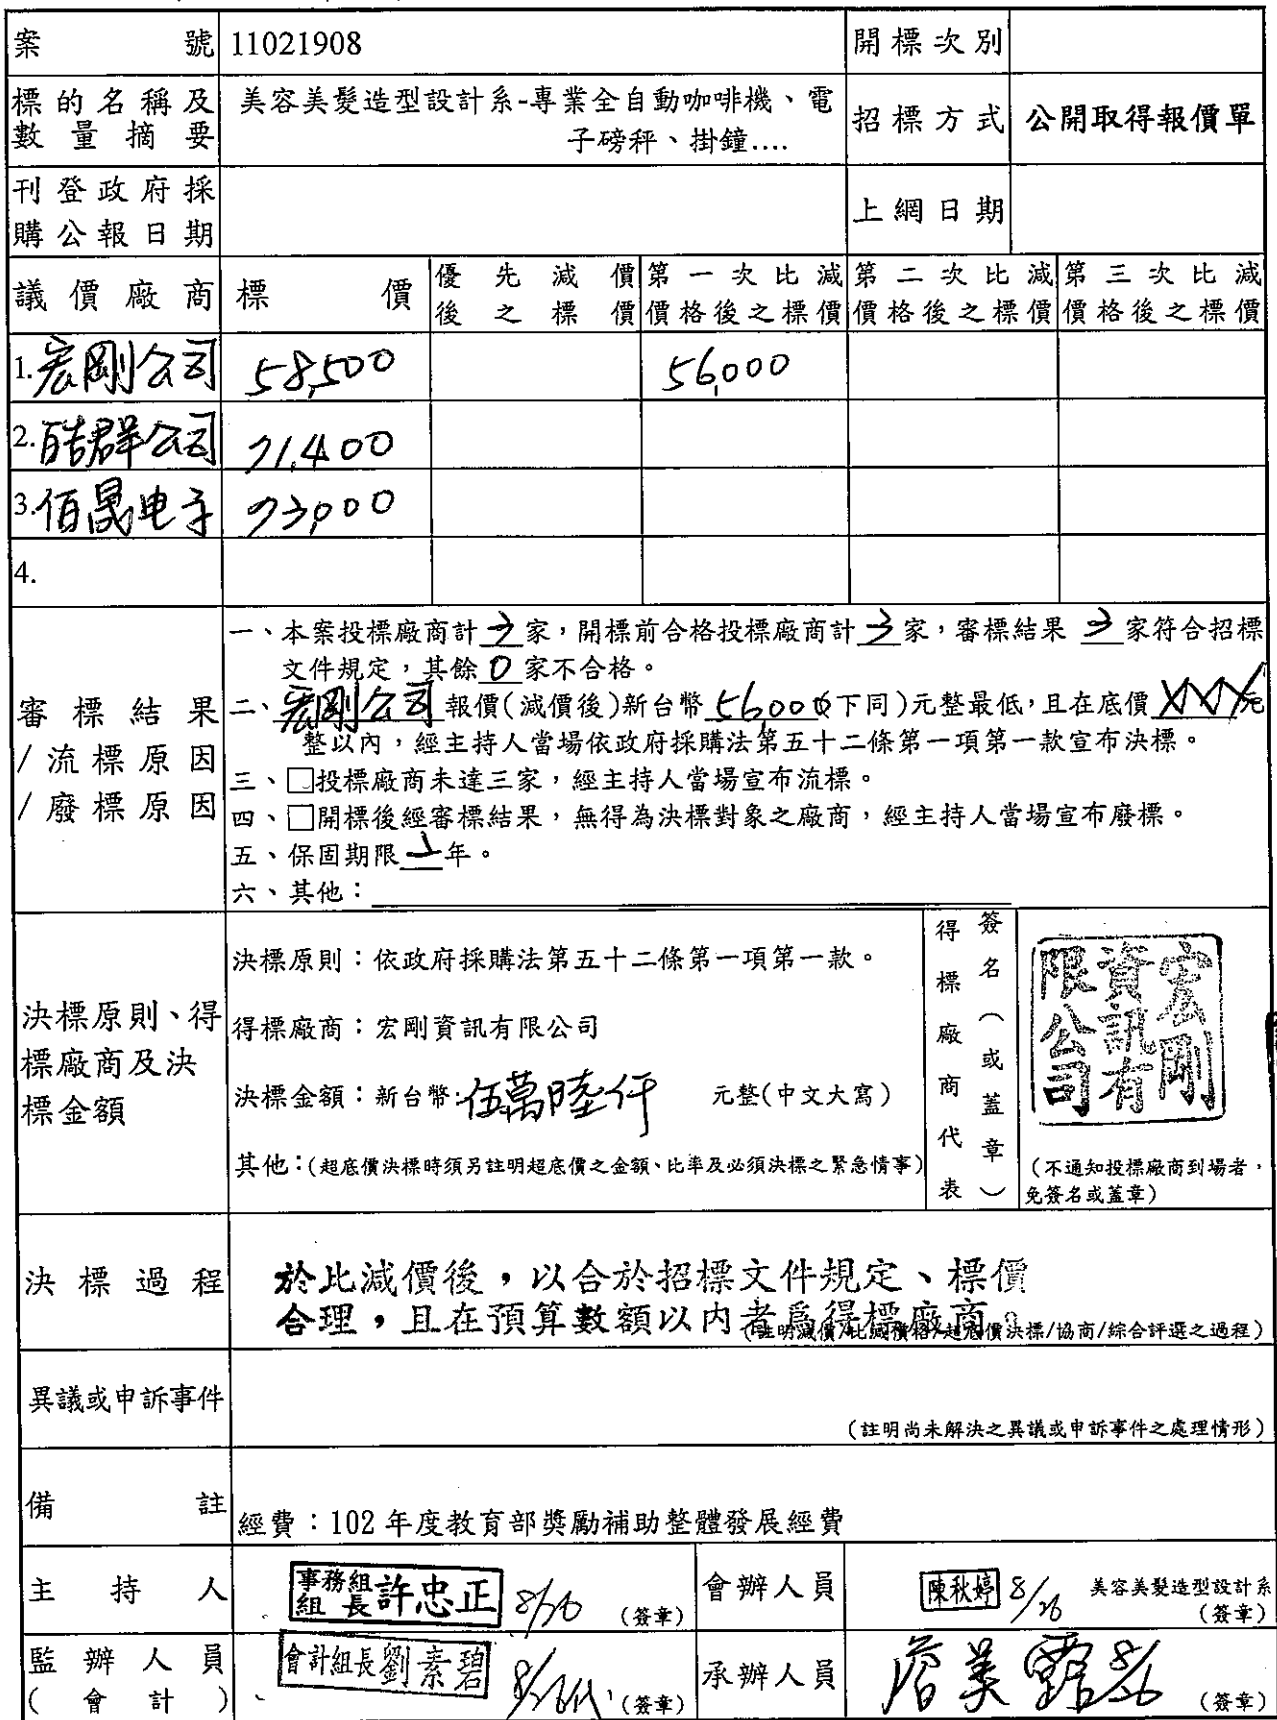 案號 11021908 開標次別
標的名稱及數量摘要 美容美髮造型設計系-專業全自動咖啡機、電子磅秤、掛鐘.... 招標方式 公開取得報價單
刊登政府採購公報日期 上網日期
議價廠商 標價 優先減價後之標價 第一次比減價格後之標價 第二次比減價格後之標價 第三次比減價格後之標價
1. 宏剛公司 58,500 56,000
2. 皓群公司 71,400
3. 佰晟电子 73,000
4.
審標結果/流標原因/廢標原因
一、本案投標廠商計 3 家，開標前合格投標廠商計 3 家，審標結果 3 家符合招標
文件規定，其餘 0 家不合格。
二、宏剛公司 報價(減價後)新台幣 56,000 (下同)元整最低，且在底價 XXX 元
整以內，經主持人當場依政府採購法第五十二條第一項第一款宣布決標。
三、□投標廠商未達三家，經主持人當場宣布流標。
四、□開標後經審標結果，無得為決標對象之廠商，經主持人當場宣布廢標。
五、保固期限 1 年。
六、其他：
決標原則、得標廠商及決標金額
決標原則：依政府採購法第五十二條第一項第一款。
得標廠商：宏剛資訊有限公司
決標金額：新台幣:伍萬陸仟 元整(中文大寫)
其他：(超底價決標時須另註明超底價之金額、比率及必須決標之緊急情事)
得標廠商代表
簽名（或蓋章）
宏剛
資訊有
限公司
(不通知投標廠商到場者，
免簽名或蓋章)
決標過程
於比減價後，以合於招標文件規定、標價
合理，且在預算數額以內者為得標廠商。
(註明減價/比減價格/超底價決標/協商/綜合評選之過程)
異議或申訴事件
(註明尚未解決之異議或申訴事件之處理情形)
備註 經費：102 年度教育部獎勵補助整體發展經費
主持人 事務組組長 許忠正 8/26 (簽章) 會辦人員 陳秋婷 8/26 美容美髮造型設計系 (簽章)
監辦人員(會計) 會計組長 劉素碧 (簽章) 承辦人員 8/26 (簽章)